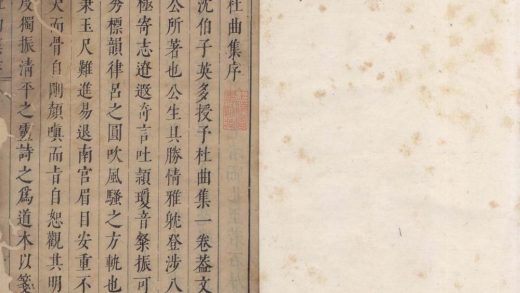 杜曲集序
沈伯子英多授予杜曲集一卷葢文
公所著也公生具勝情雅躭登涉八
極寄志遼邈奇言吐頴瓊音粲振可
爲標韻律呂之圓吹風騷之方軌也
秉玉尺難進易退南宫眉目安重不
大而骨自剛顔嗔而㫖自恕觀其明
度獨振清平之
詩之爲道木以箋